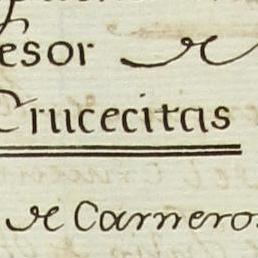 esor de
Crucecitas
de Carneros